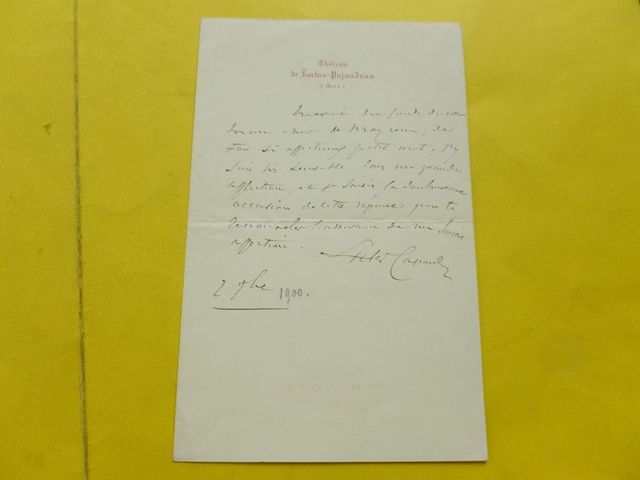 Château
de Lartus-Pujaudran
(Gers)
Merci du fond du cœur
mon cher de Mazade, de
ton si affectueux petit mot. J'y
suis très sensible dans ma grande
affliction, et je saisis la douloureuse
occasion de cette réponse pour te
renouveler l'assurance de ma sincère
affection.
7 9bre 1900.